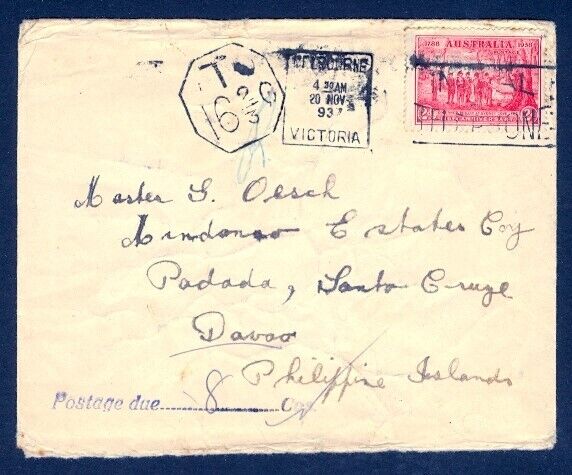 T G
16 2/3
MELBOURNE
4 30AM
20 NOV
937
VICTORIA
1788 AUSTRALIA 1938
POSTAGE
MELBOURNE
Master G. Oesch
Mindanao Estates Coy
Padada, Santa Cruze
Davao
Philippine Islands
Postage due 8